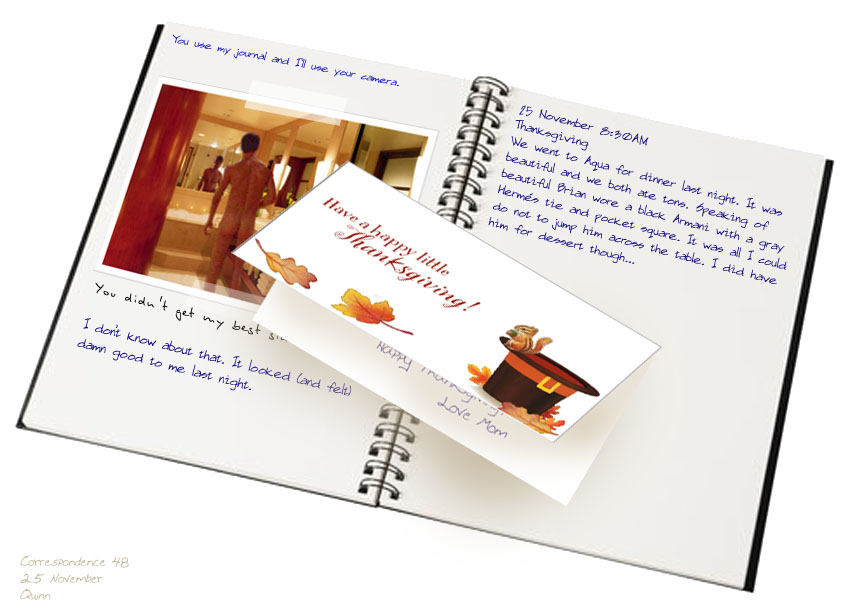 You use my journal and I'll use your camera.
You didn't get my best
I don't know about that. It looked (and felt)
damn good to me last night.
25 November 8:30AM
Thanksgiving
We went to Aqua for dinner last night. It was
beautiful and we both ate tons. Speaking of
beautiful Brian wore a black Armani with a gray
Hermés tie and pocket square. It was all I could
do not to jump him across the table. I did have
him for dessert though...
Have a happy little
Thanksgiving!
Happy Thanksgiving!
Love Mom
Correspondence 48
25 November
Quinn